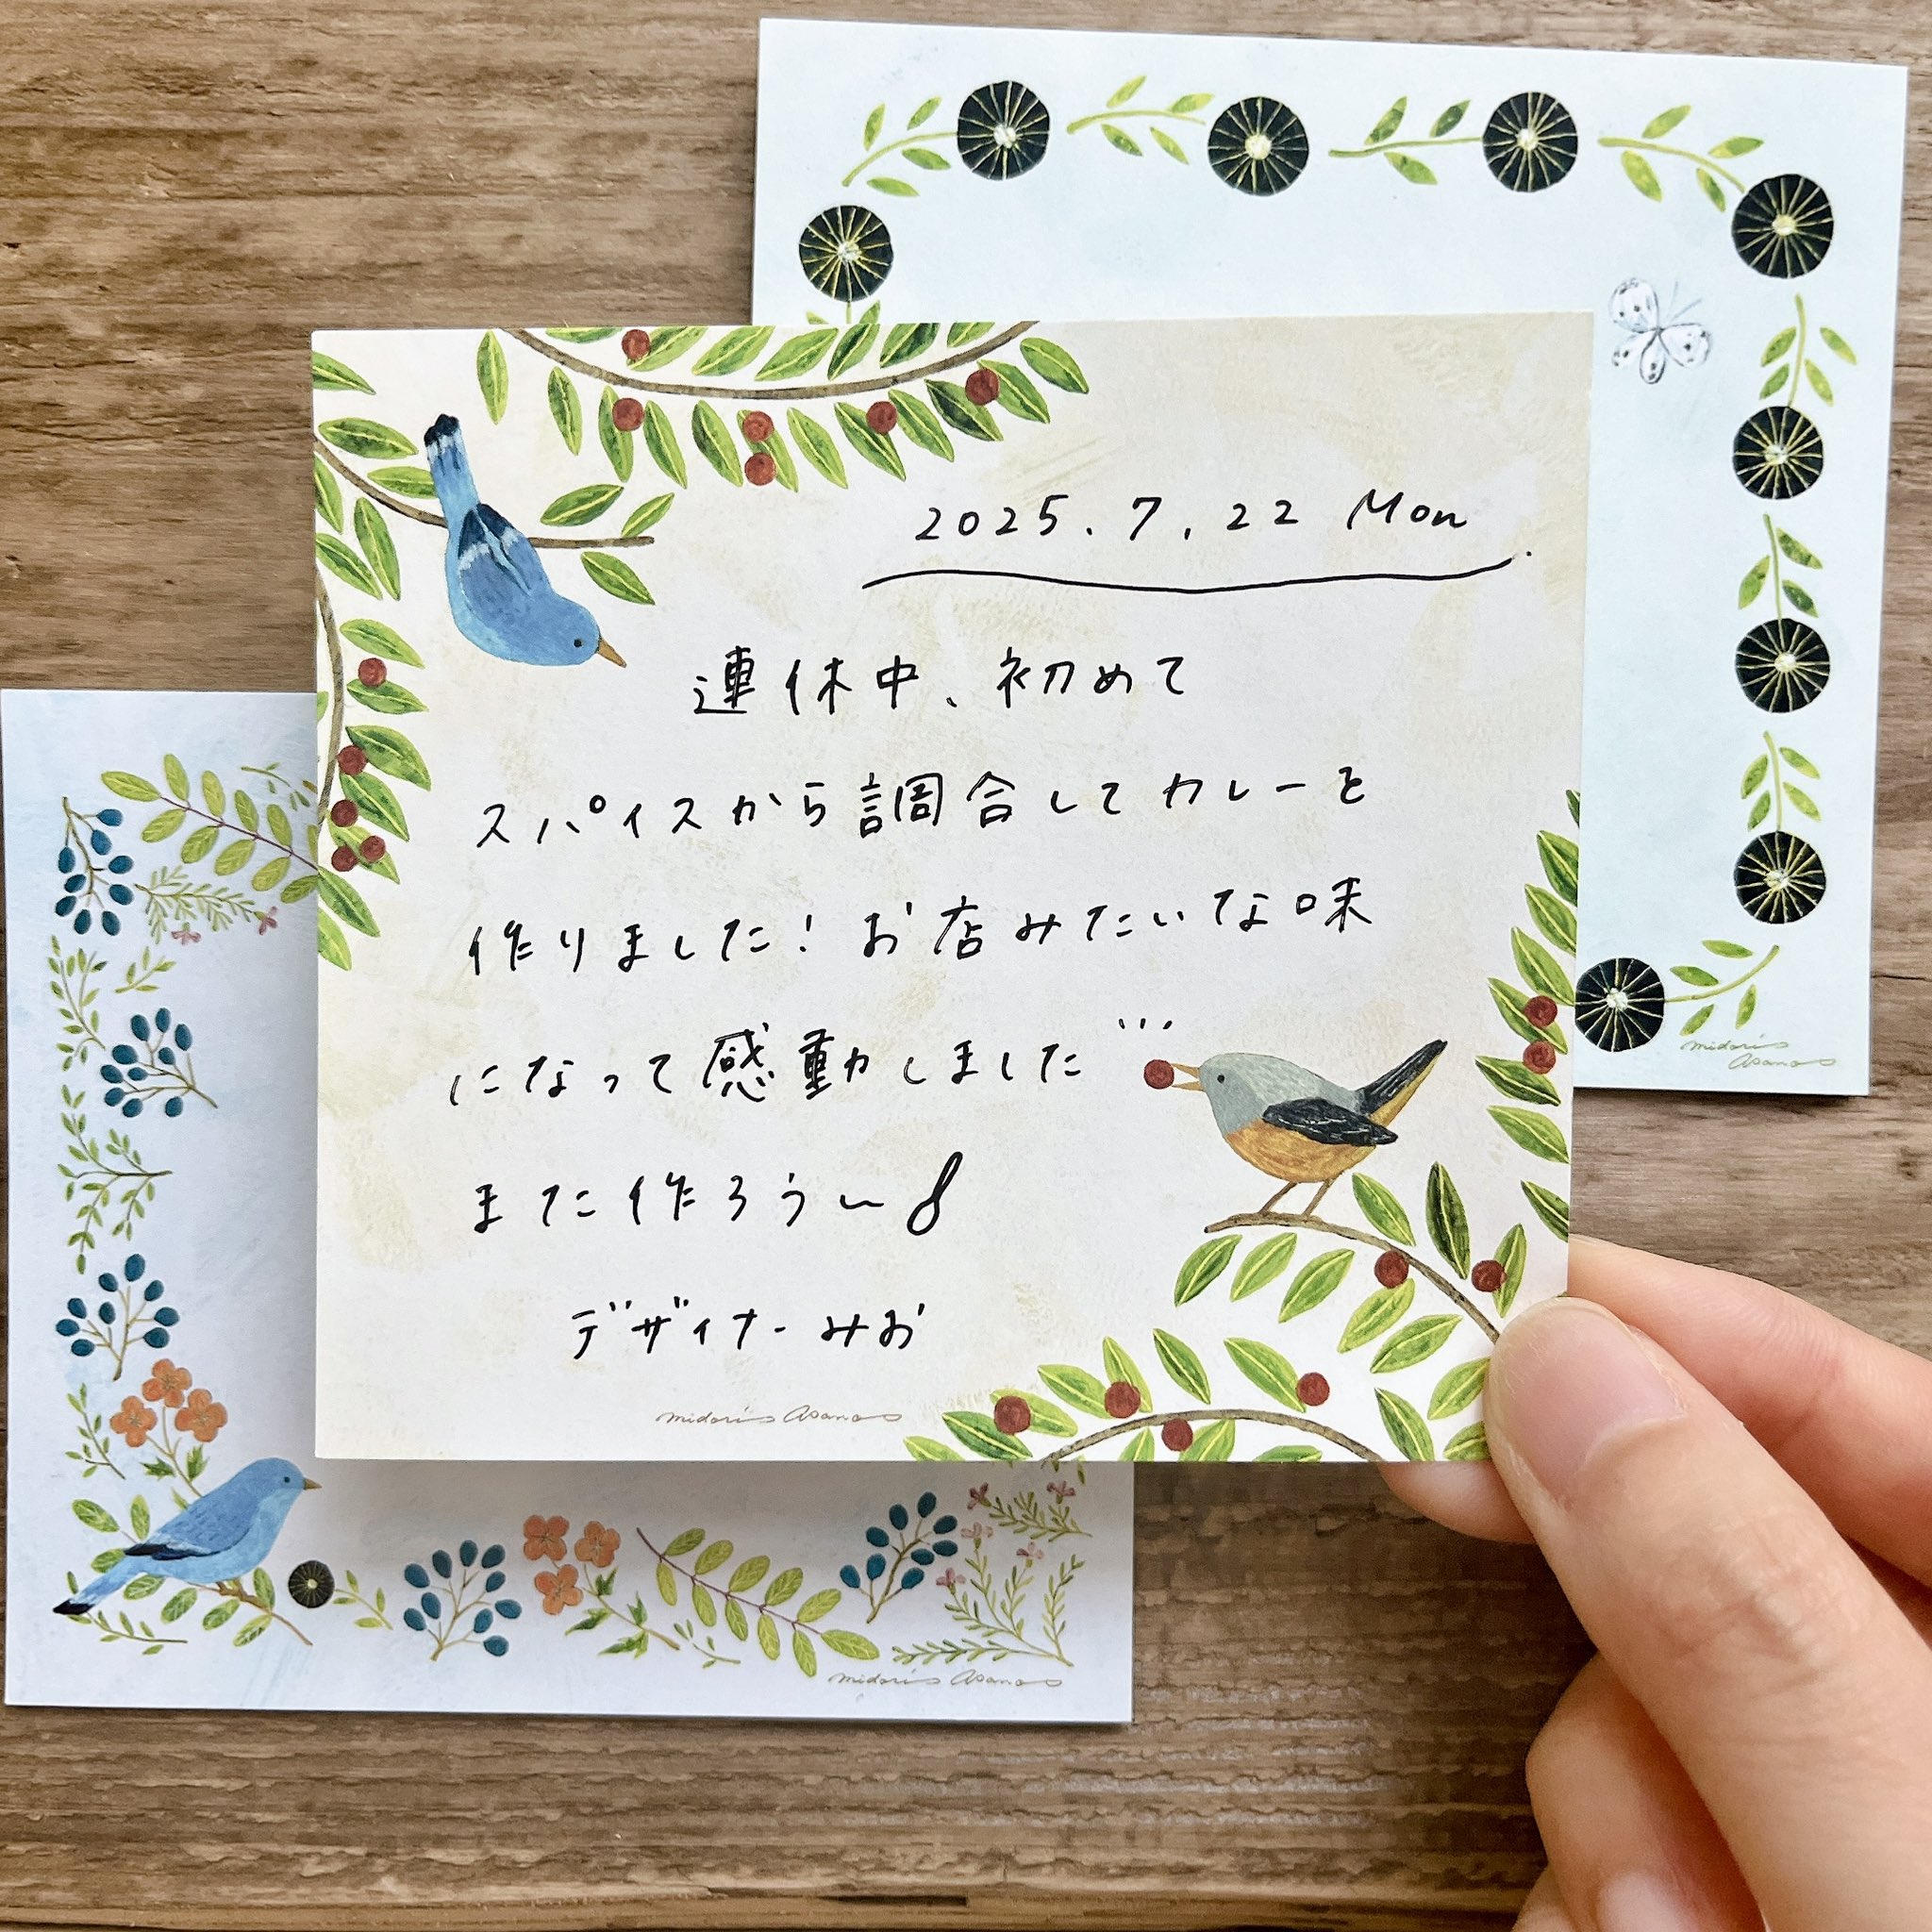 2025.7.22 Mon.
連休中、初めて
スパイスから調合してカレーを
作りました！お店みたいな味
になって感動しました…
また作ろう〜
デザイナーみお
midori asano
midori
asano
midori asano